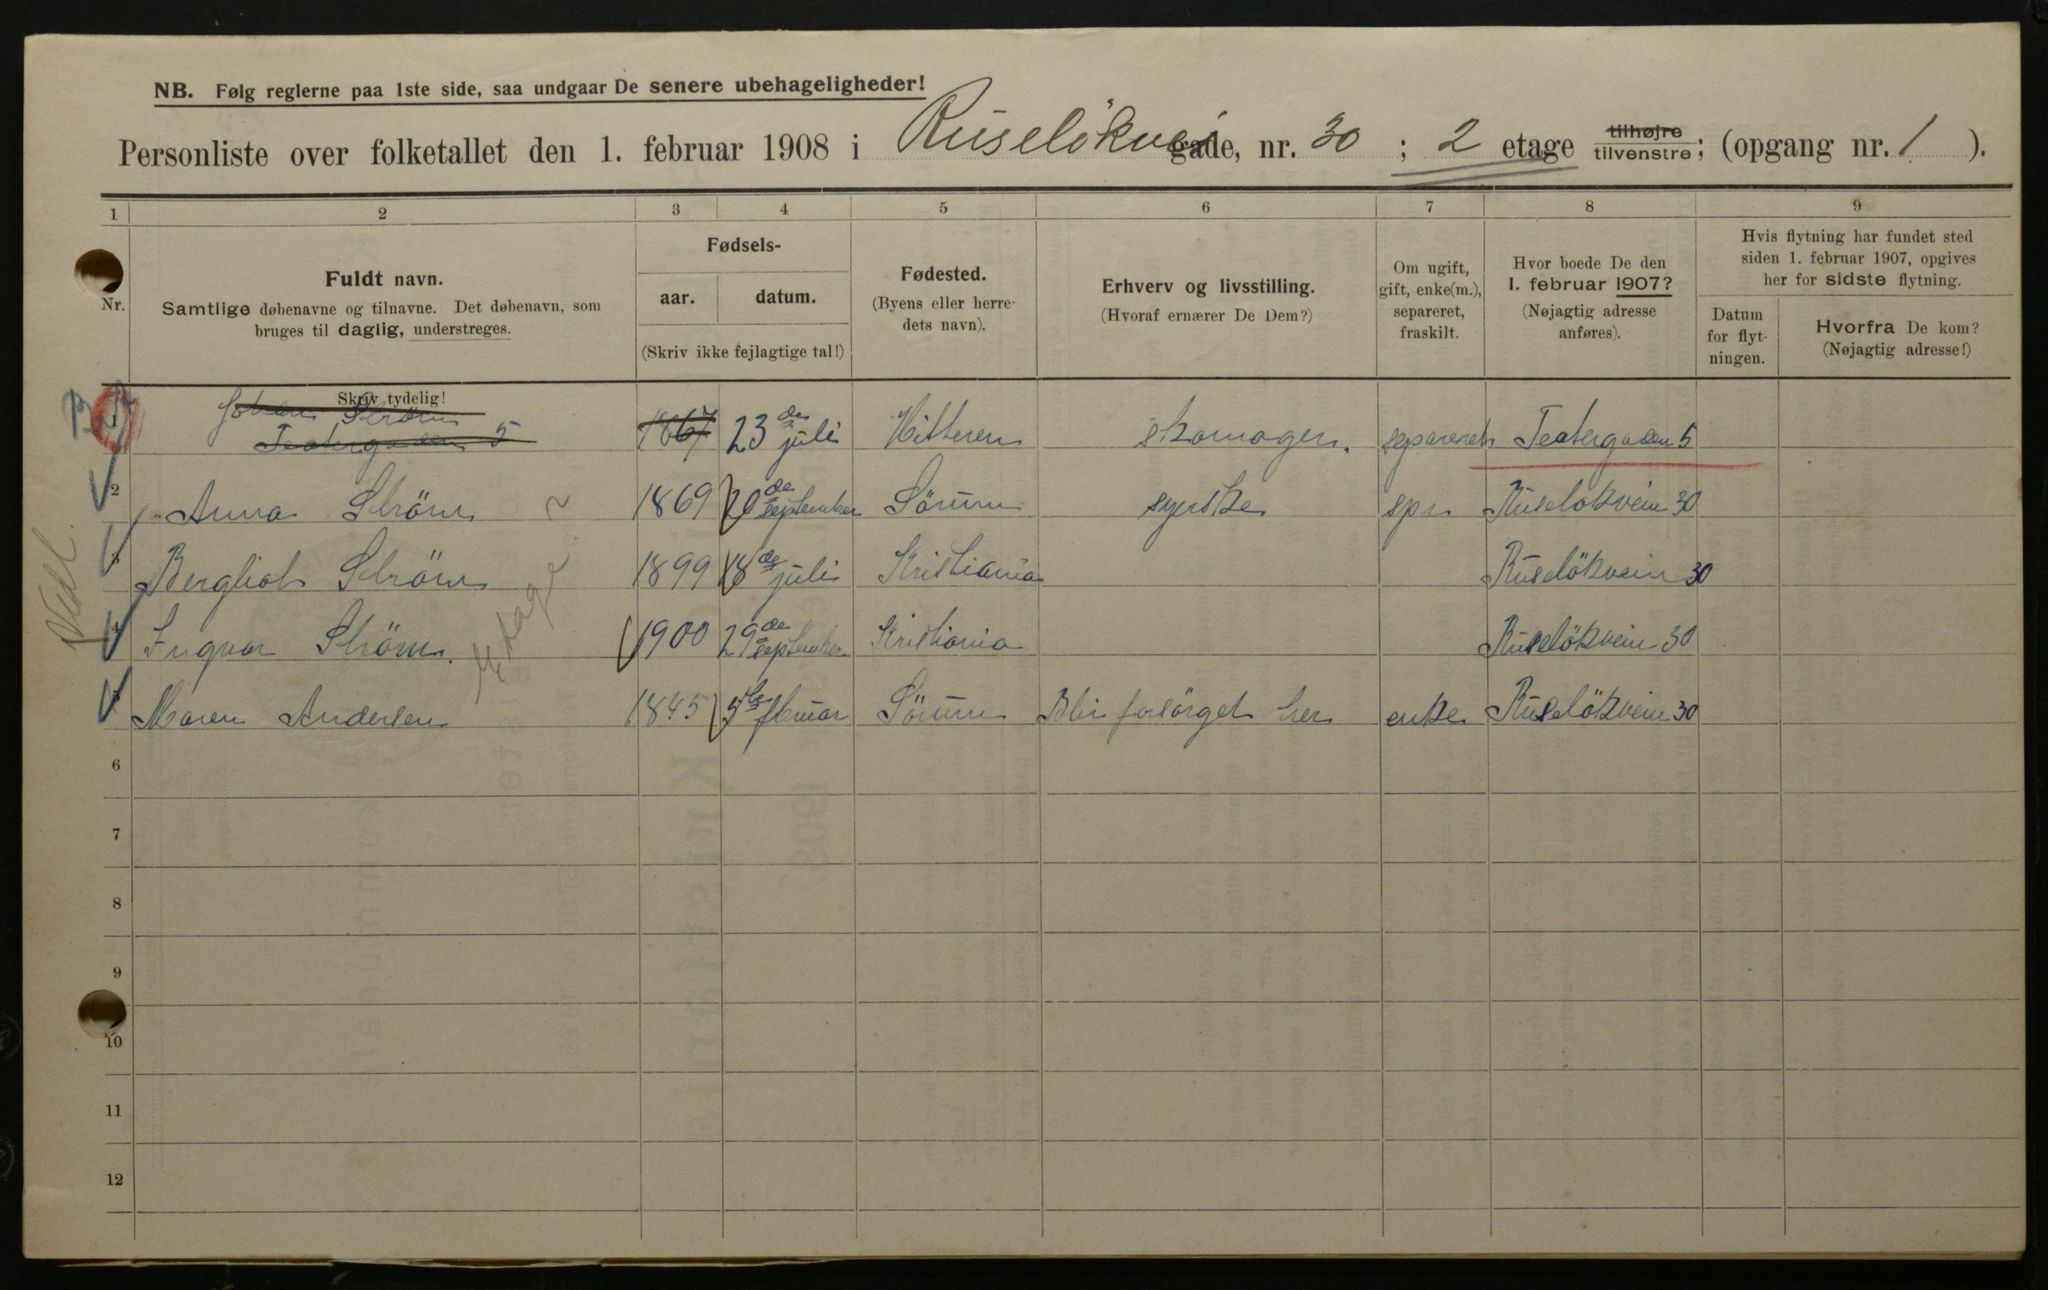 NB. Følg reglerne paa 1ste side, saa undgaar De senere ubehageligheder!
Personliste over folketallet den 1. februar 1908 i Ruselökvei gade, nr. 30 ; 2 etage tilhøjre tilvenstre; (opgang nr. 1 ).
1 2 3 4 5 6 7 8 9
Nr.
Fuldt navn.
Samtlige døbenavne og tilnavne. Det døbenavn, som
bruges til daglig, understreges.
Skriv tydelig!
Fødsels-
aar. datum.
(Skriv ikke fejlagtige tal!)
Fødested.
(Byens eller herre-
dets navn).
Erhverv og livsstilling.
(Hvoraf ernærer De Dem?)
Om ugift,
gift, enke(m.),
separeret,
fraskilt.
Hvor boede De den
1. februar 1907?
(Nøjagtig adresse
anføres).
Hvis flytning har fundet sted
siden 1. februar 1907, opgives
her for sidste flytning.
Datum
for flyt-
ningen.
Hvorfra De kom?
(Nøjagtig adresse!)
1 Johan Ström 1867 23de juli Hitteren skomager. separeret Teatergaden 5
Teatergaden 5
2 Anna Ström 1869 20de september Sörum syerske spr Ruselökvein 30
3 Bergliot Ström 1899 18de juli Kristiania Ruselökvein 30
4 Ingvar Ström. 1900 29de september Kristiania Ruselökvein 30
5 Maren Andersen 1845 5te februar Sörum Blir forsörget her enke Ruselökvein 30
6
7
8
9
10
11
12